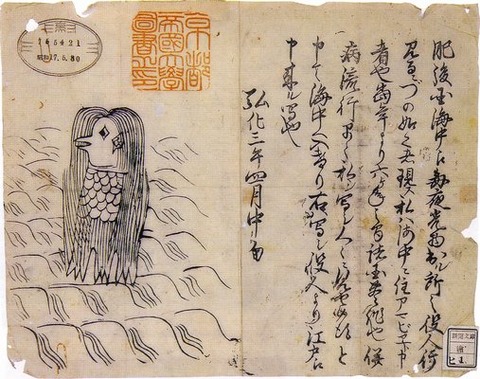 肥後国海中え毎夜光物出ル所之役人行
見るニづの如之者現ス私ハ海中ニ住アマビヱト申
者也當年より六ヶ年之間諸国豊作也併
病流行早々私シ写シ人々ニ見セ候得と
申て海中へ入けり右写シ役人より江戸え
申来ル写也
弘化三年四月中旬
京都
帝國大學
圖書之印
165421
昭和17.5.30
新聞文庫